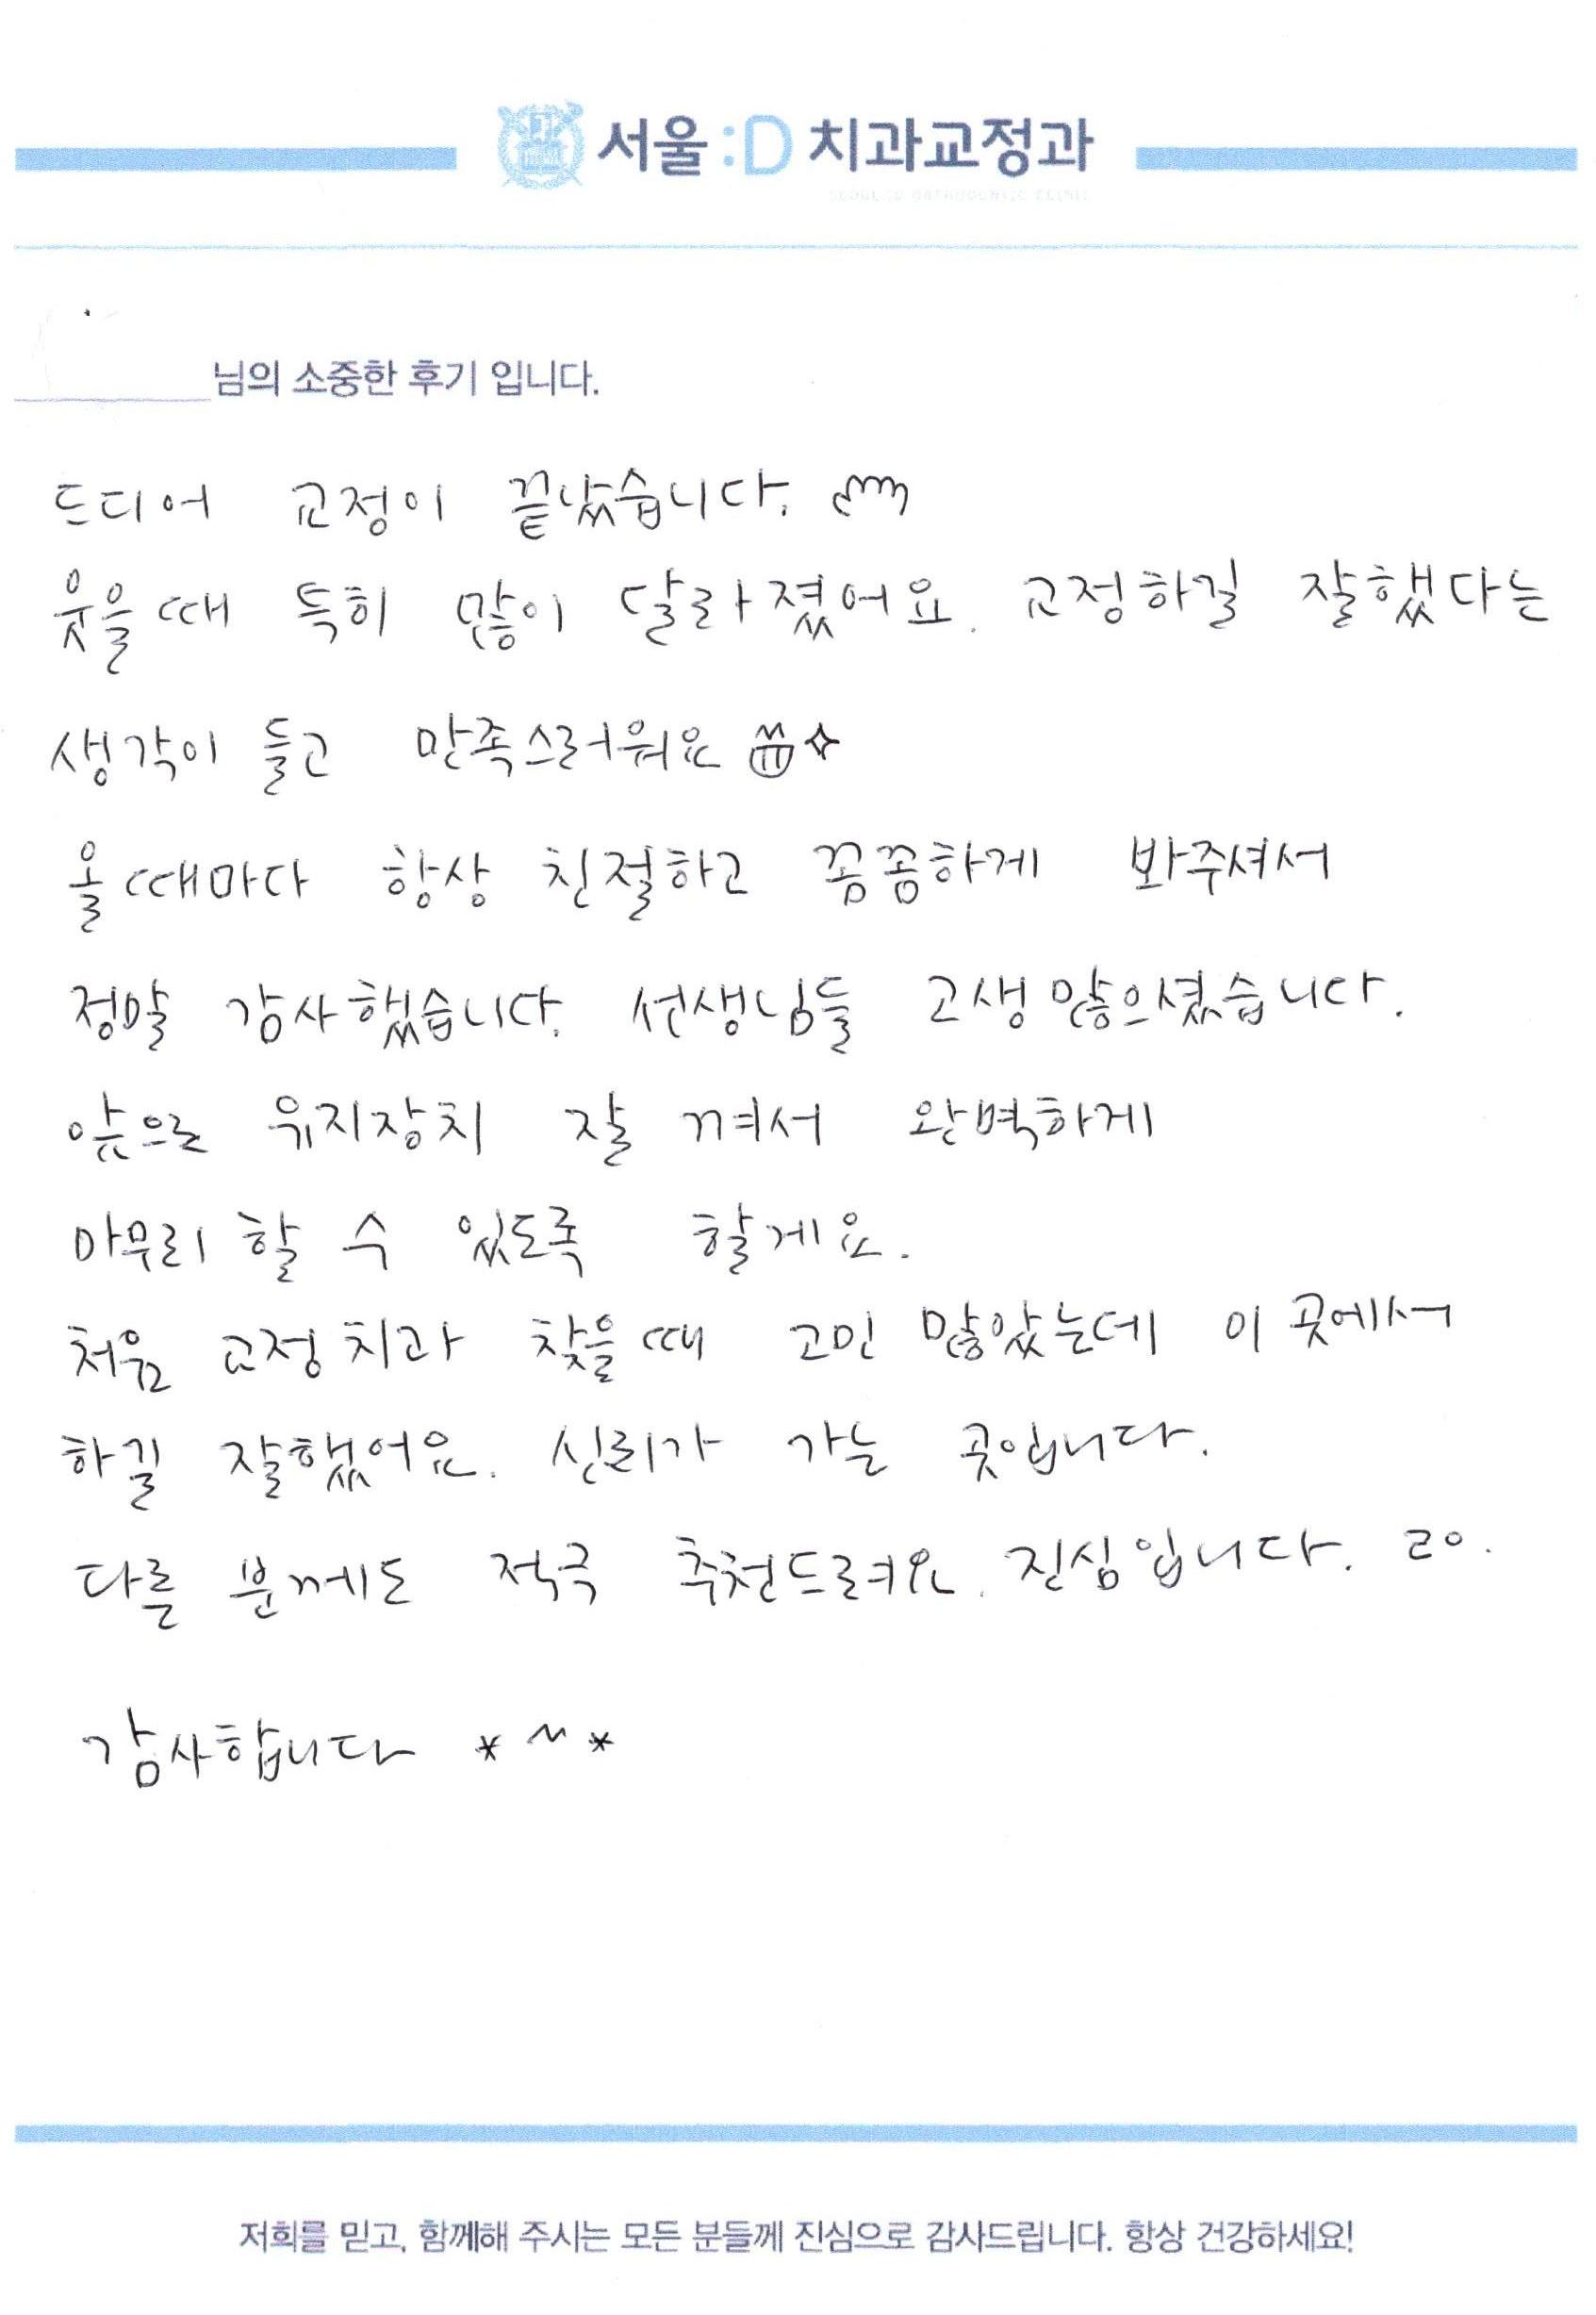 서울:D치과교정과
SEOUL:D ORTHODONTIC CLINIC
님의 소중한 후기 입니다.
드디어 교정이 끝났습니다.
웃을때 특히 많이 달라졌어요. 교정하길 잘했다는
생각이 들고 만족스러워요
올때마다 항상 친절하고 꼼꼼하게 봐주셔서
정말 감사했습니다. 선생님들 고생많으셨습니다.
앞으로 유지장치 잘 껴서 완벽하게
마무리 할 수 있도록 할게요.
처음 교정치과 찾을때 고민 많았는데 이 곳에서
하길 잘했어요. 신뢰가 가는 곳입니다.
다른 분께도 적극 추천드려요. 진심입니다. ㄹㅇ.
감사합니다 *~*
저희를 믿고, 함께해 주시는 모든 분들께 진심으로 감사드립니다. 항상 건강하세요!